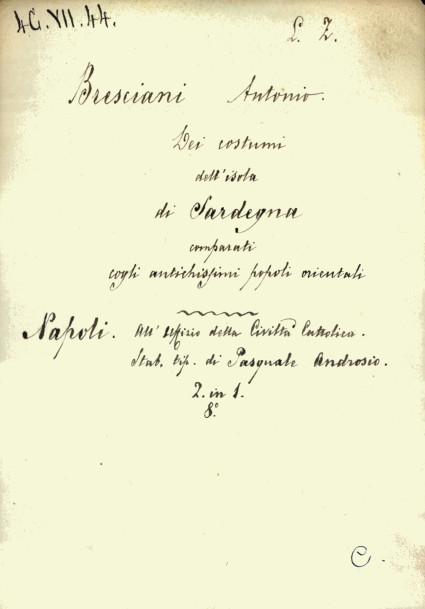 4C.VII.44.
L. Z.
Bresciani Antonio.
Dei costumi
dell'isola
di Sardegna
comparati
cogli antichissimi popoli orientali
Napoli. All'Uffizio della Civiltà Cattolica.
Stab. tip. di Pasquale Androsio.
2. in 1.
8.°
C.